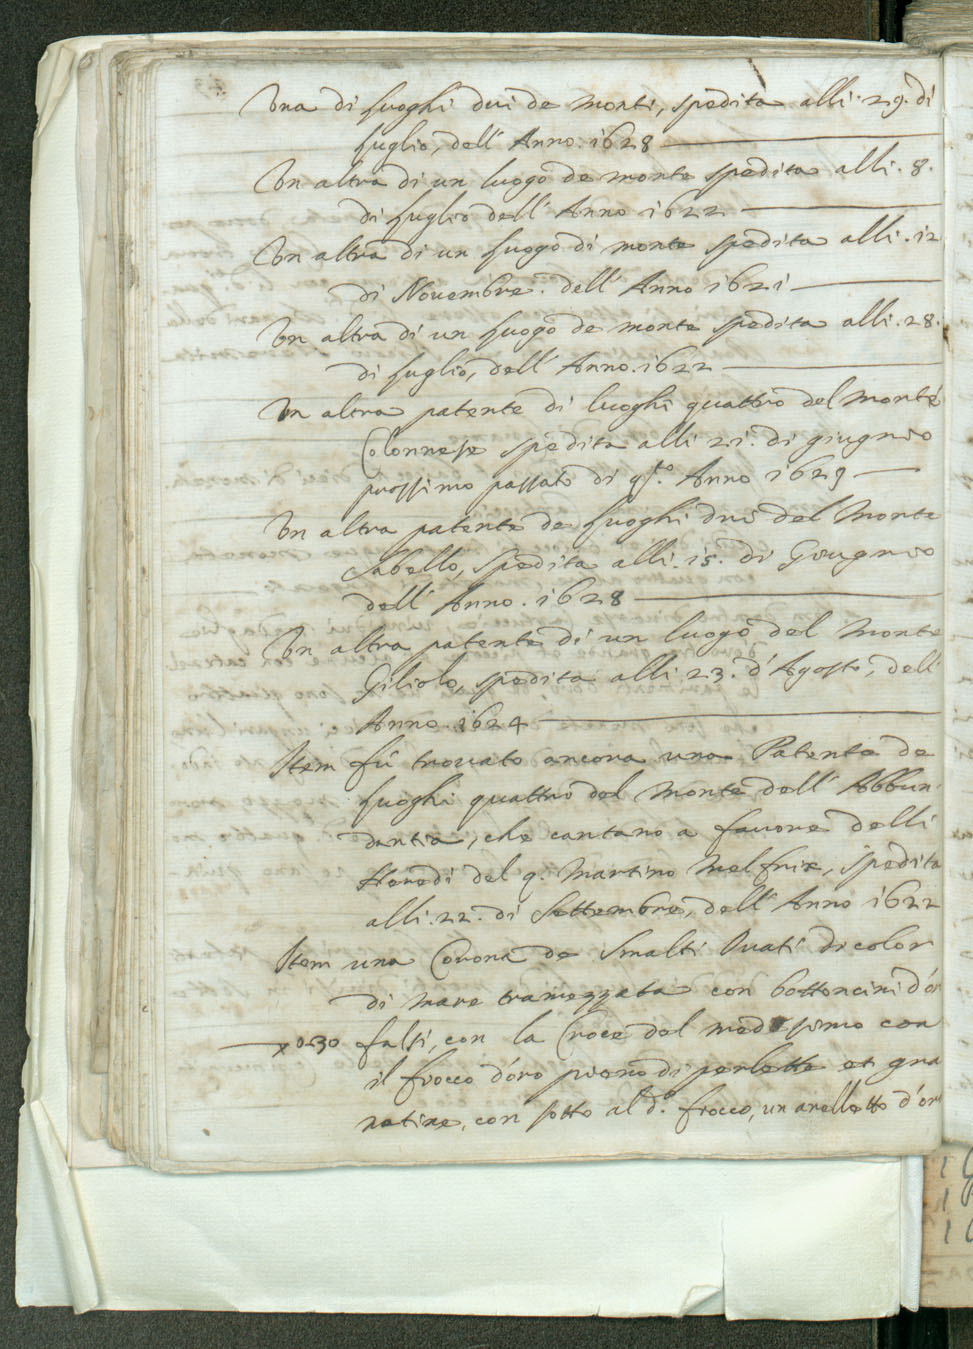 Una di luoghi dui de monti, spedita alli. 29. di
luglio, dell' Anno. 1628
Un altra di un luogo de monte spedita alli. 8.
di luglio dell' Anno 1622
Un altra di un luogo di monte spedita alli. 12
di Novembre. dell' Anno 1621
Un altra di un luogo de monte spedita alli. 28.
di luglio, dell' Anno. 1622
Un altra patente di luoghi quattro del monte
Colonnese spedita alli 21. di giugnio
prossimo passato di q.to Anno 1629
Un altra patente de luoghi dui del Monte
Sabello, spedita alli. 15. di Giugnio
dell' Anno. 1628
Un altra patente di un luogo del Monte
Giliolo, spedita alli. 23. d'Agosto, dell'
Anno. 1624
Item fù trovato ancora una Patente de
luoghi quattro del Monte dell' Abbun
dantia, che cantano a favore delli
Heredi del q. Martino, spedita
alli. 22. di Settembre, dell' Anno 1622
Item una Corona de Smalti Ovati di color
di mare tramezzata con bottoncini d'or
falsi, con la Croce del medesimo con
il fiocco d'oro pieno di perlette et gra
natine, con sotto al d.o fiocco, un anelletto d'or